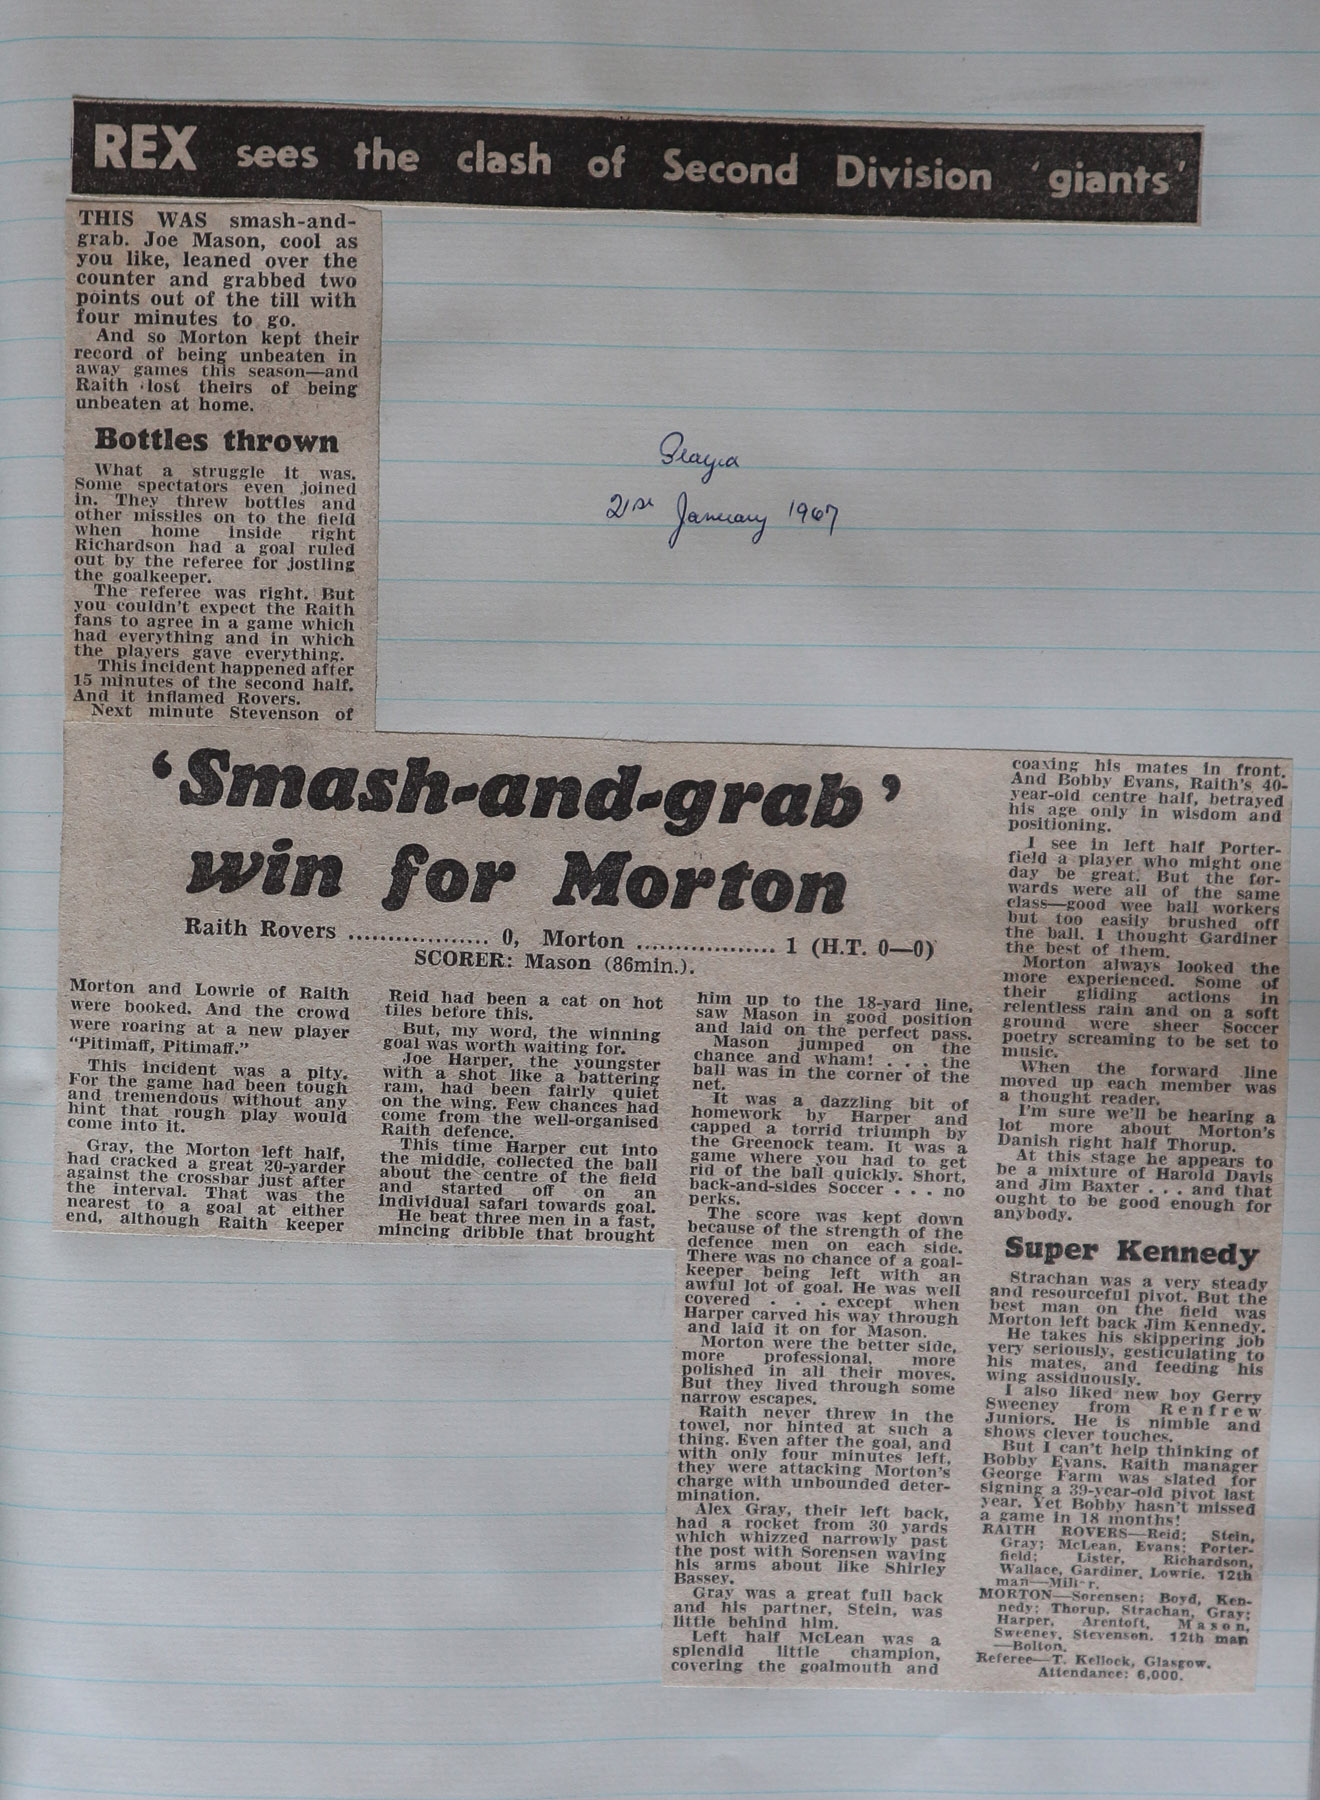 REX sees the clash of Second Division 'giants'
THIS WAS smash-and-
grab. Joe Mason, cool as
you like, leaned over the
counter and grabbed two
points out of the till with
four minutes to go.
And so Morton kept their
record of being unbeaten in
away games this season—and
Raith lost theirs of being
unbeaten at home.
Bottles thrown
What a struggle it was.
Some spectators even joined
in. They threw bottles and
other missiles on to the field
when home inside right
Richardson had a goal ruled
out by the referee for jostling
the goalkeeper.
The referee was right. But
you couldn't expect the Raith
fans to agree in a game which
had everything and in which
the players gave everything.
This incident happened after
15 minutes of the second half.
And it inflamed Rovers.
Next minute Stevenson of
Played
21st January 1967
'Smash-and-grab'
win for Morton
Raith Rovers ................. 0, Morton ................. 1 (H.T. 0—0)
SCORER: Mason (86min.).
Morton and Lowrie of Raith
were booked. And the crowd
were roaring at a new player
"Pitimaff, Pitimaff."
This incident was a pity.
For the game had been tough
and tremendous without any
hint that rough play would
come into it.
Gray, the Morton left half,
had cracked a great 20-yarder
against the crossbar just after
the interval. That was the
nearest to a goal at either
end, although Raith keeper
Reid had been a cat on hot
tiles before this.
But, my word, the winning
goal was worth waiting for.
Joe Harper, the youngster
with a shot like a battering
ram, had been fairly quiet
on the wing. Few chances had
come from the well-organised
Raith defence.
This time Harper cut into
the middle, collected the ball
about the centre of the field
and started off on an
individual safari towards goal.
He beat three men in a fast,
mincing dribble that brought
him up to the 18-yard line,
saw Mason in good position
and laid on the perfect pass.
Mason jumped on the
chance and wham! . . . the
ball was in the corner of the
net.
It was a dazzling bit of
homework by Harper and
capped a torrid triumph by
the Greenock team. It was a
game where you had to get
rid of the ball quickly. Short,
back-and-sides Soccer . . . no
perks.
The score was kept down
because of the strength of the
defence men on each side.
There was no chance of a goal-
keeper being left with an
awful lot of goal. He was well
covered . . . except when
Harper carved his way through
and laid it on for Mason.
Morton were the better side,
more professional, more
polished in all their moves.
But they lived through some
narrow escapes.
Raith never threw in the
towel, nor hinted at such a
thing. Even after the goal, and
with only four minutes left,
they were attacking Morton's
charge with unbounded deter-
mination.
Alex Gray, their left back,
had a rocket from 30 yards
which whizzed narrowly past
the post with Sorensen waving
his arms about like Shirley
Bassey.
Gray was a great full back
and his partner, Stein, was
little behind him.
Left half McLean was a
splendid little champion,
covering the goalmouth and
coaxing his mates in front.
And Bobby Evans, Raith's 40-
year-old centre half, betrayed
his age only in wisdom and
positioning.
I see in left half Porter-
field a player who might one
day be great. But the for-
wards were all of the same
class—good wee ball workers
but too easily brushed off
the ball. I thought Gardiner
the best of them.
Morton always looked the
more experienced. Some of
their gliding actions in
relentless rain and on a soft
ground were sheer Soccer
poetry screaming to be set to
music.
When the forward line
moved up each member was
a thought reader.
I'm sure we'll be hearing a
lot more about Morton's
Danish right half Thorup.
At this stage he appears to
be a mixture of Harold Davis
and Jim Baxter . . . and that
ought to be good enough for
anybody.
Super Kennedy
Strachan was a very steady
and resourceful pivot. But the
best man on the field was
Morton left back Jim Kennedy.
He takes his skippering job
very seriously, gesticulating to
his mates, and feeding his
wing assiduously.
I also liked new boy Gerry
Sweeney from Renfrew
Juniors. He is nimble and
shows clever touches.
But I can't help thinking of
Bobby Evans. Raith manager
George Farm was slated for
signing a 39-year-old pivot last
year. Yet Bobby hasn't missed
a game in 18 months!
RAITH ROVERS—Reid; Stein,
Gray; McLean, Evans; Porter-
field; Lister, Richardson,
Wallace, Gardiner, Lowrie. 12th
man—
MORTON—Sorensen; Boyd, Ken-
nedy; Thorup, Strachan, Gray;
Harper, Arentoft, Mason,
Sweeney, Stevenson. 12th man
—Bolton.
Referee—T. Kellock, Glasgow.
Attendance: 6,000.